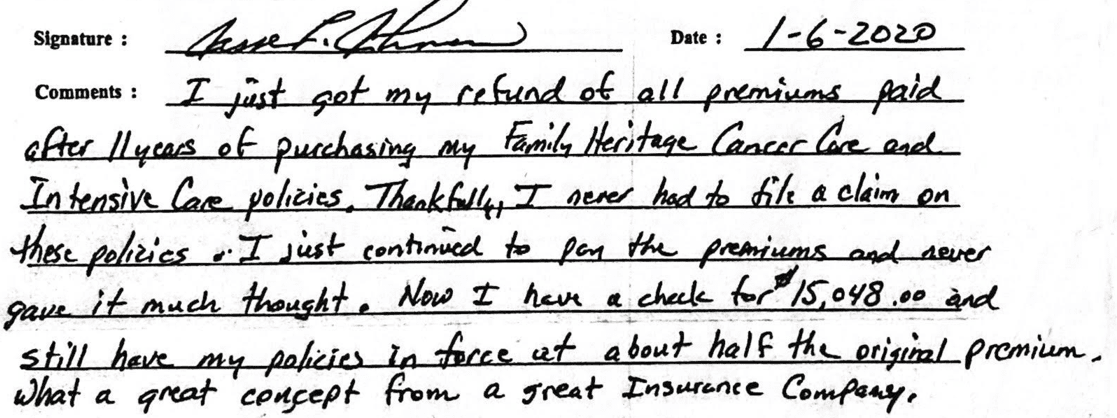 Signature : Date : 1-6-2020
Comments : I just got my refund of all premiums paid
after 11 years of purchasing my Family Heritage Cancer Care and
Intensive Care policies. Thankfully, I never had to file a claim on
these policies. I just continued to pay the premiums and never
gave it much thought. Now I have a check for $15,048.00 and
still have my policies in force at about half the original premium.
What a great concept from a great Insurance Company.